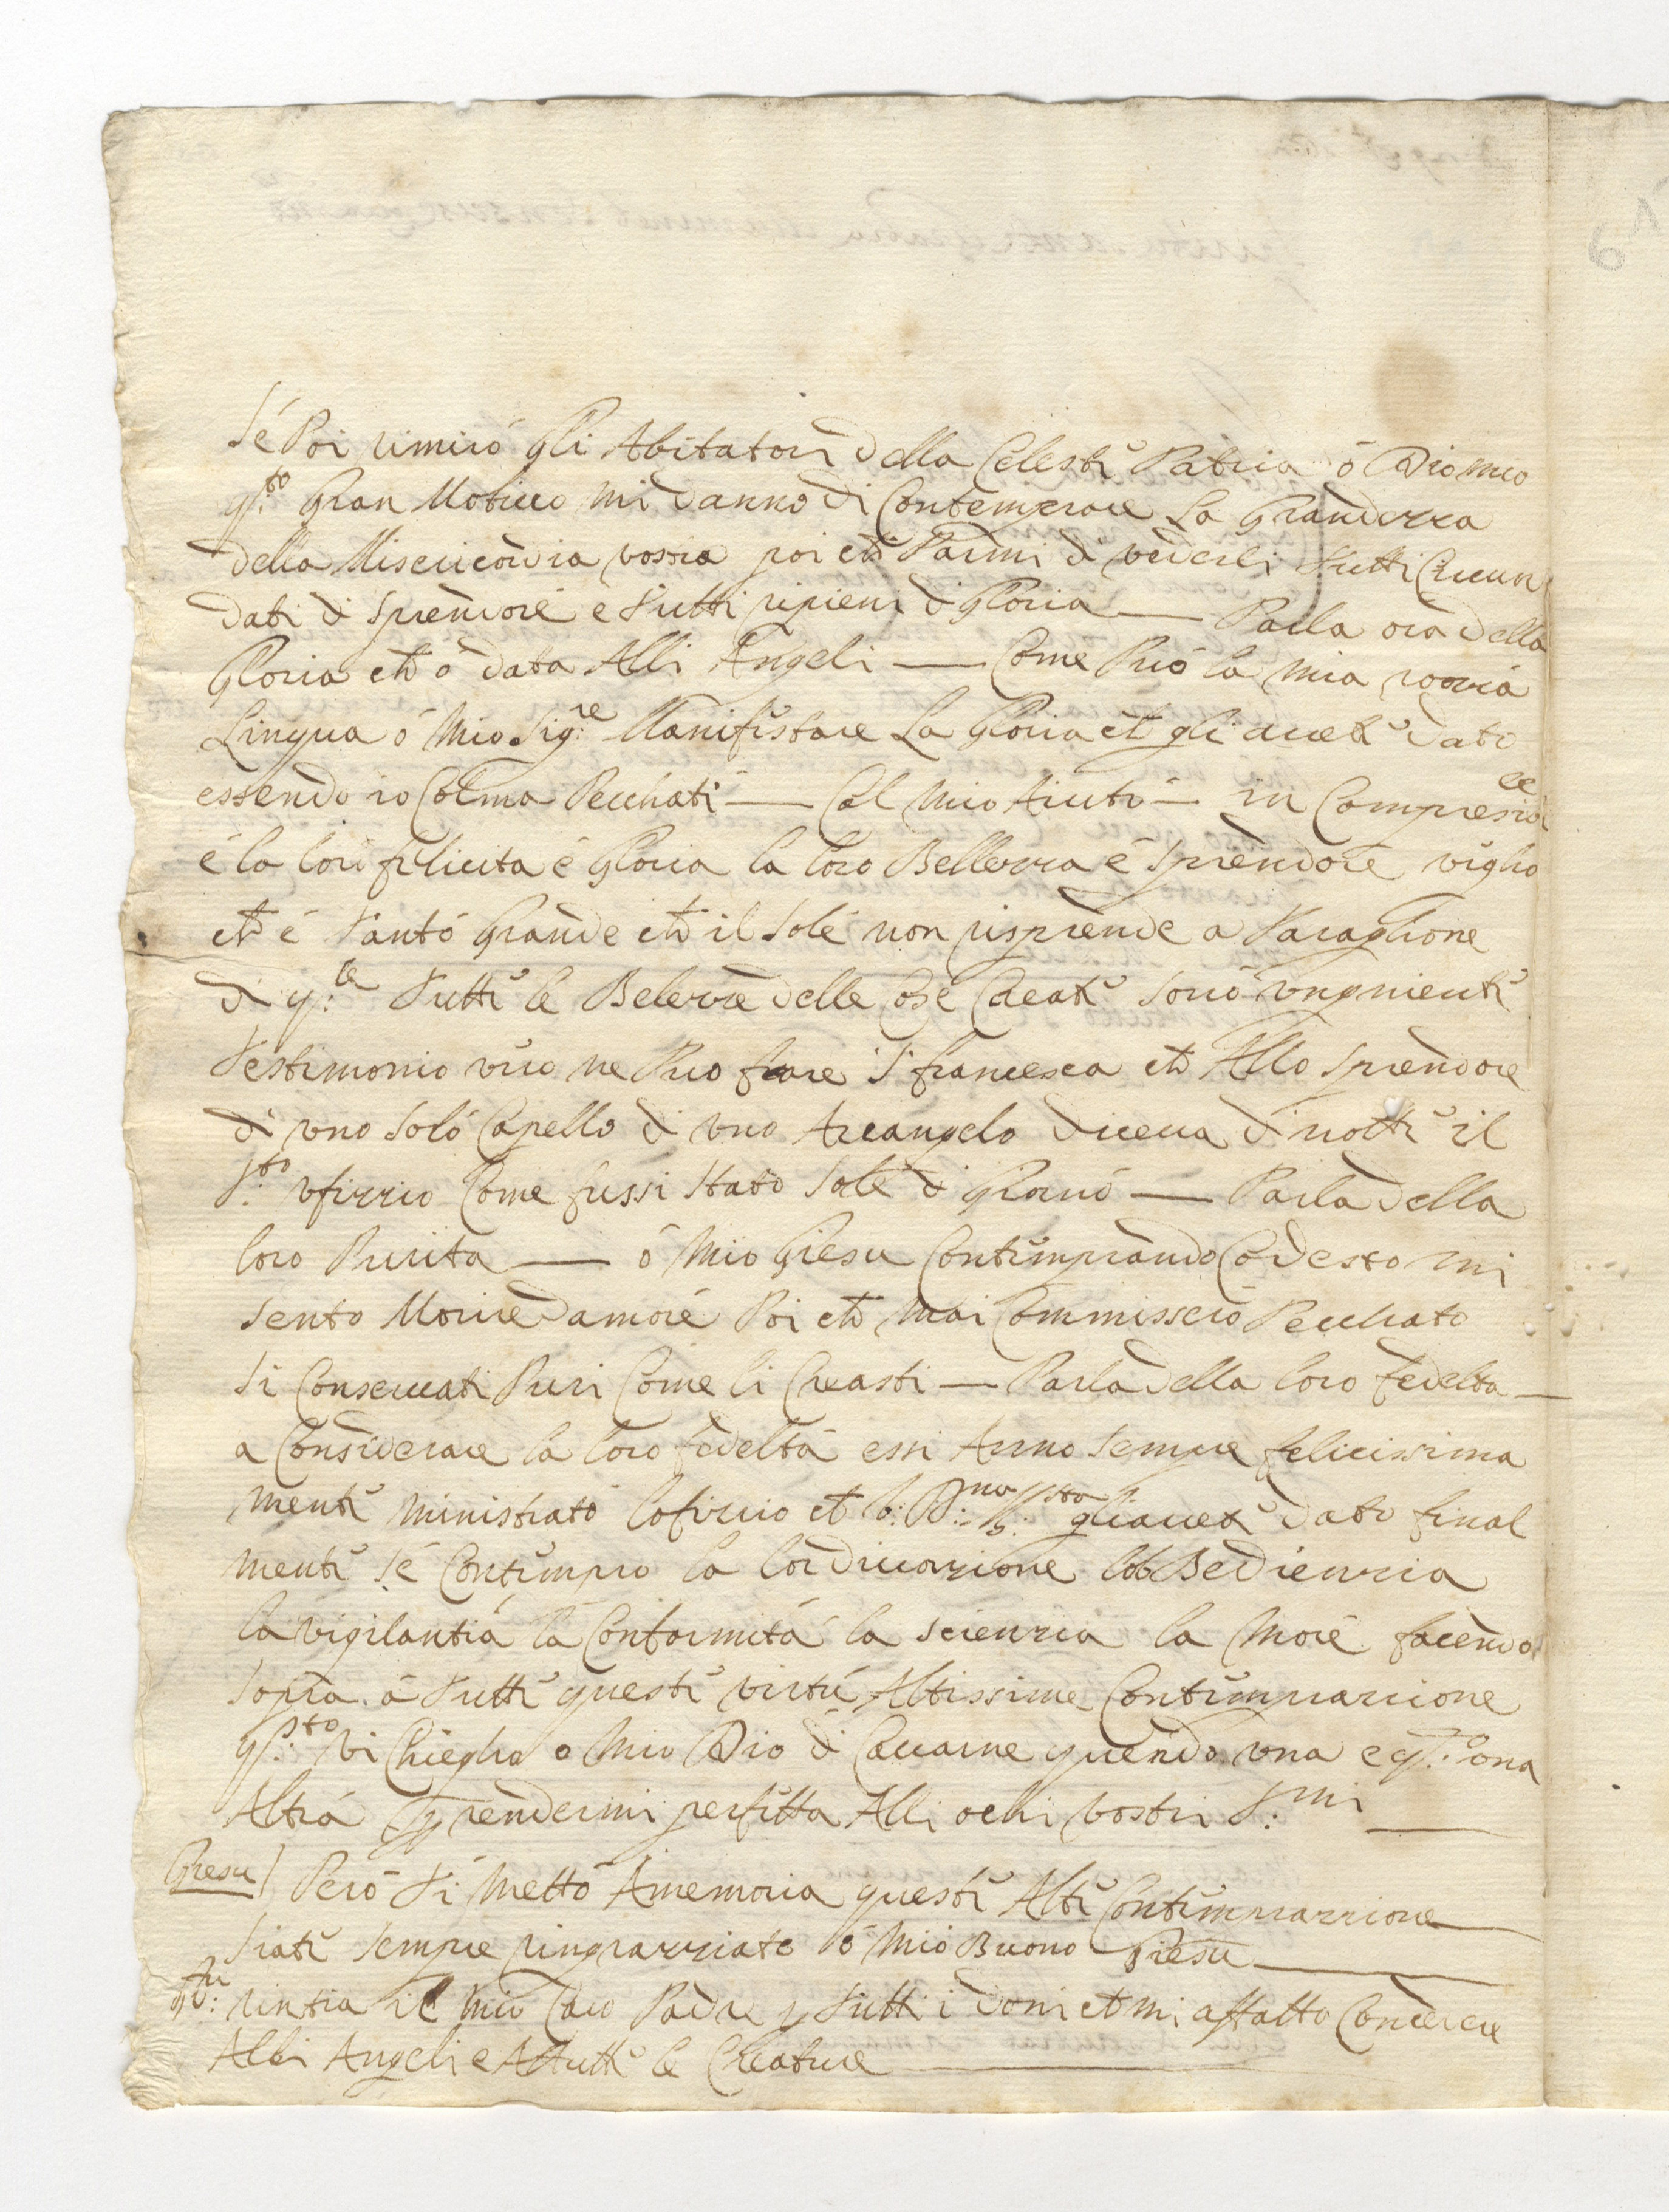 Sé Poi rimiró gli Abitatori della Celesti Patria ó Dio mio
q.sto Gran Motiuo mi danno di Contemprare La Grandezza
della Misericordia vostra poi che Parmi di vederli tutti Circun
dati di sprendore e tutti ripieni di Gloria — Parla ora della
Gloria che ó data Alli Angeli — Come Puó la mia rozza
Lingua ó mio Sig.re Manifestare La Gloria che gli auete dato
essendo io Colma Pecchati — Col mio Aiuto — in Compresi
é la loro felicita é Gloria la loro Bellezza é sprendore voglio
che é tanto Grande che il Sole non risprende a Paraglione
di q.la tutte le Belezze delle Cose Create sono un gniente
testimonio viuo ne Puo fare S. francesca che Allo sprendore
di uno solo Capello di uno Arcangelo diceua di notte il
S.to vfizzio Come fussi stato Sole di giorno — Parla della
loro Purita — ó Mio Giesu Contemprando Codesto mi
sento Morire damore Poi che mai Commissero Pecchato
Si Conseruati Puri Come li Creasti — Parla della loro fedelta —
a Considerare la loro fedeltá essi Anno sempre felicissima
mente ministrato lofizzio che gli auete dato final
mente sé Contempro la lor diuozione lobbedienzia
la vigilantia la Conformitá la scienzia la more facendo
sopra á tutte queste virtú Altissime Contemprazzione
q.sto vi Chiegho o mio Dio di Cauarne quando una e q.do una
Altra per rendermi perfetta Alli ochi vostri S.mi —
Giesu / Peró ti metto Amemoria queste Alte Contemprazzione —
Siate sempre ringrazziato ó mio Buono Giesu —
rintia il mio Caro Padre p tutti i doni che mi a fatto Concedere
Alli Angeli e Attutte le Creature —